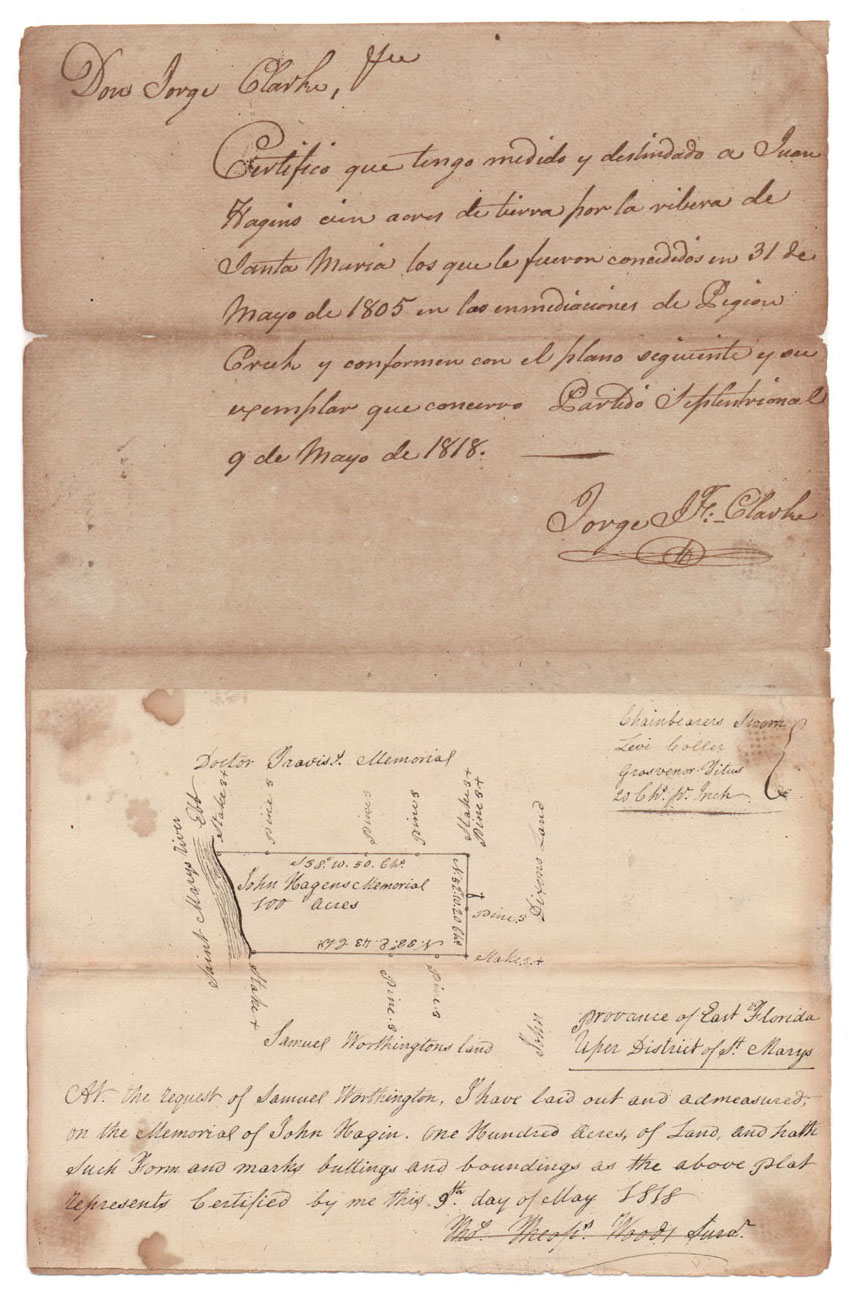 Don Jorge Clarke, &ca
Certifico que tengo medido y deslindado a Juan
Hagins cien acres de tierra por la ribera de
Santa Maria los que le fueron concedidos en 31 de
Mayo de 1805 en las enmediaciones de Pigion
Creek y conformen con el plano siguiente y su
exemplar que concerro Partido Septentrional
9 de Mayo de 1818.
Jorge J. F. Clarke
Chainbearers Sworn
Levi Coller
Grosvenor Titus
20 Chs. pr. Inch
Doctor Travis's. Memorial
Saint Marys River
Ebb
Stake 3+
Pine 3
Pine 3
Pine 3
Stake 3+
Pine 3+
S 58°. W. 50. Chs.
John Hagens Memorial
100 Acres
N. 32. W. 20 Chs.
Pine 3
John Dixons Land
N. 58°. E. 43 Chs.
Stake 3+
Stake +
Pine. 3.
Pine. 3
Samuel Worthingtons land
Provance of East Florida
Uper District of St. Marys
At. the request of Samuel Worthington, I have laid out and admeasured,
on the Memorial of John Hagin. One Hundred Acres, of Land, and hath
Such Form and marks buttings and boundings as the above plat
represents Certified by me this 9th. day of May 1818
Ths. Theops. Woods Survr.